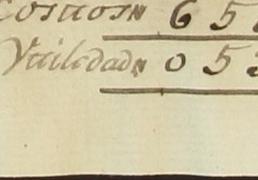 Costos 6 5
Vtilidad 0 5